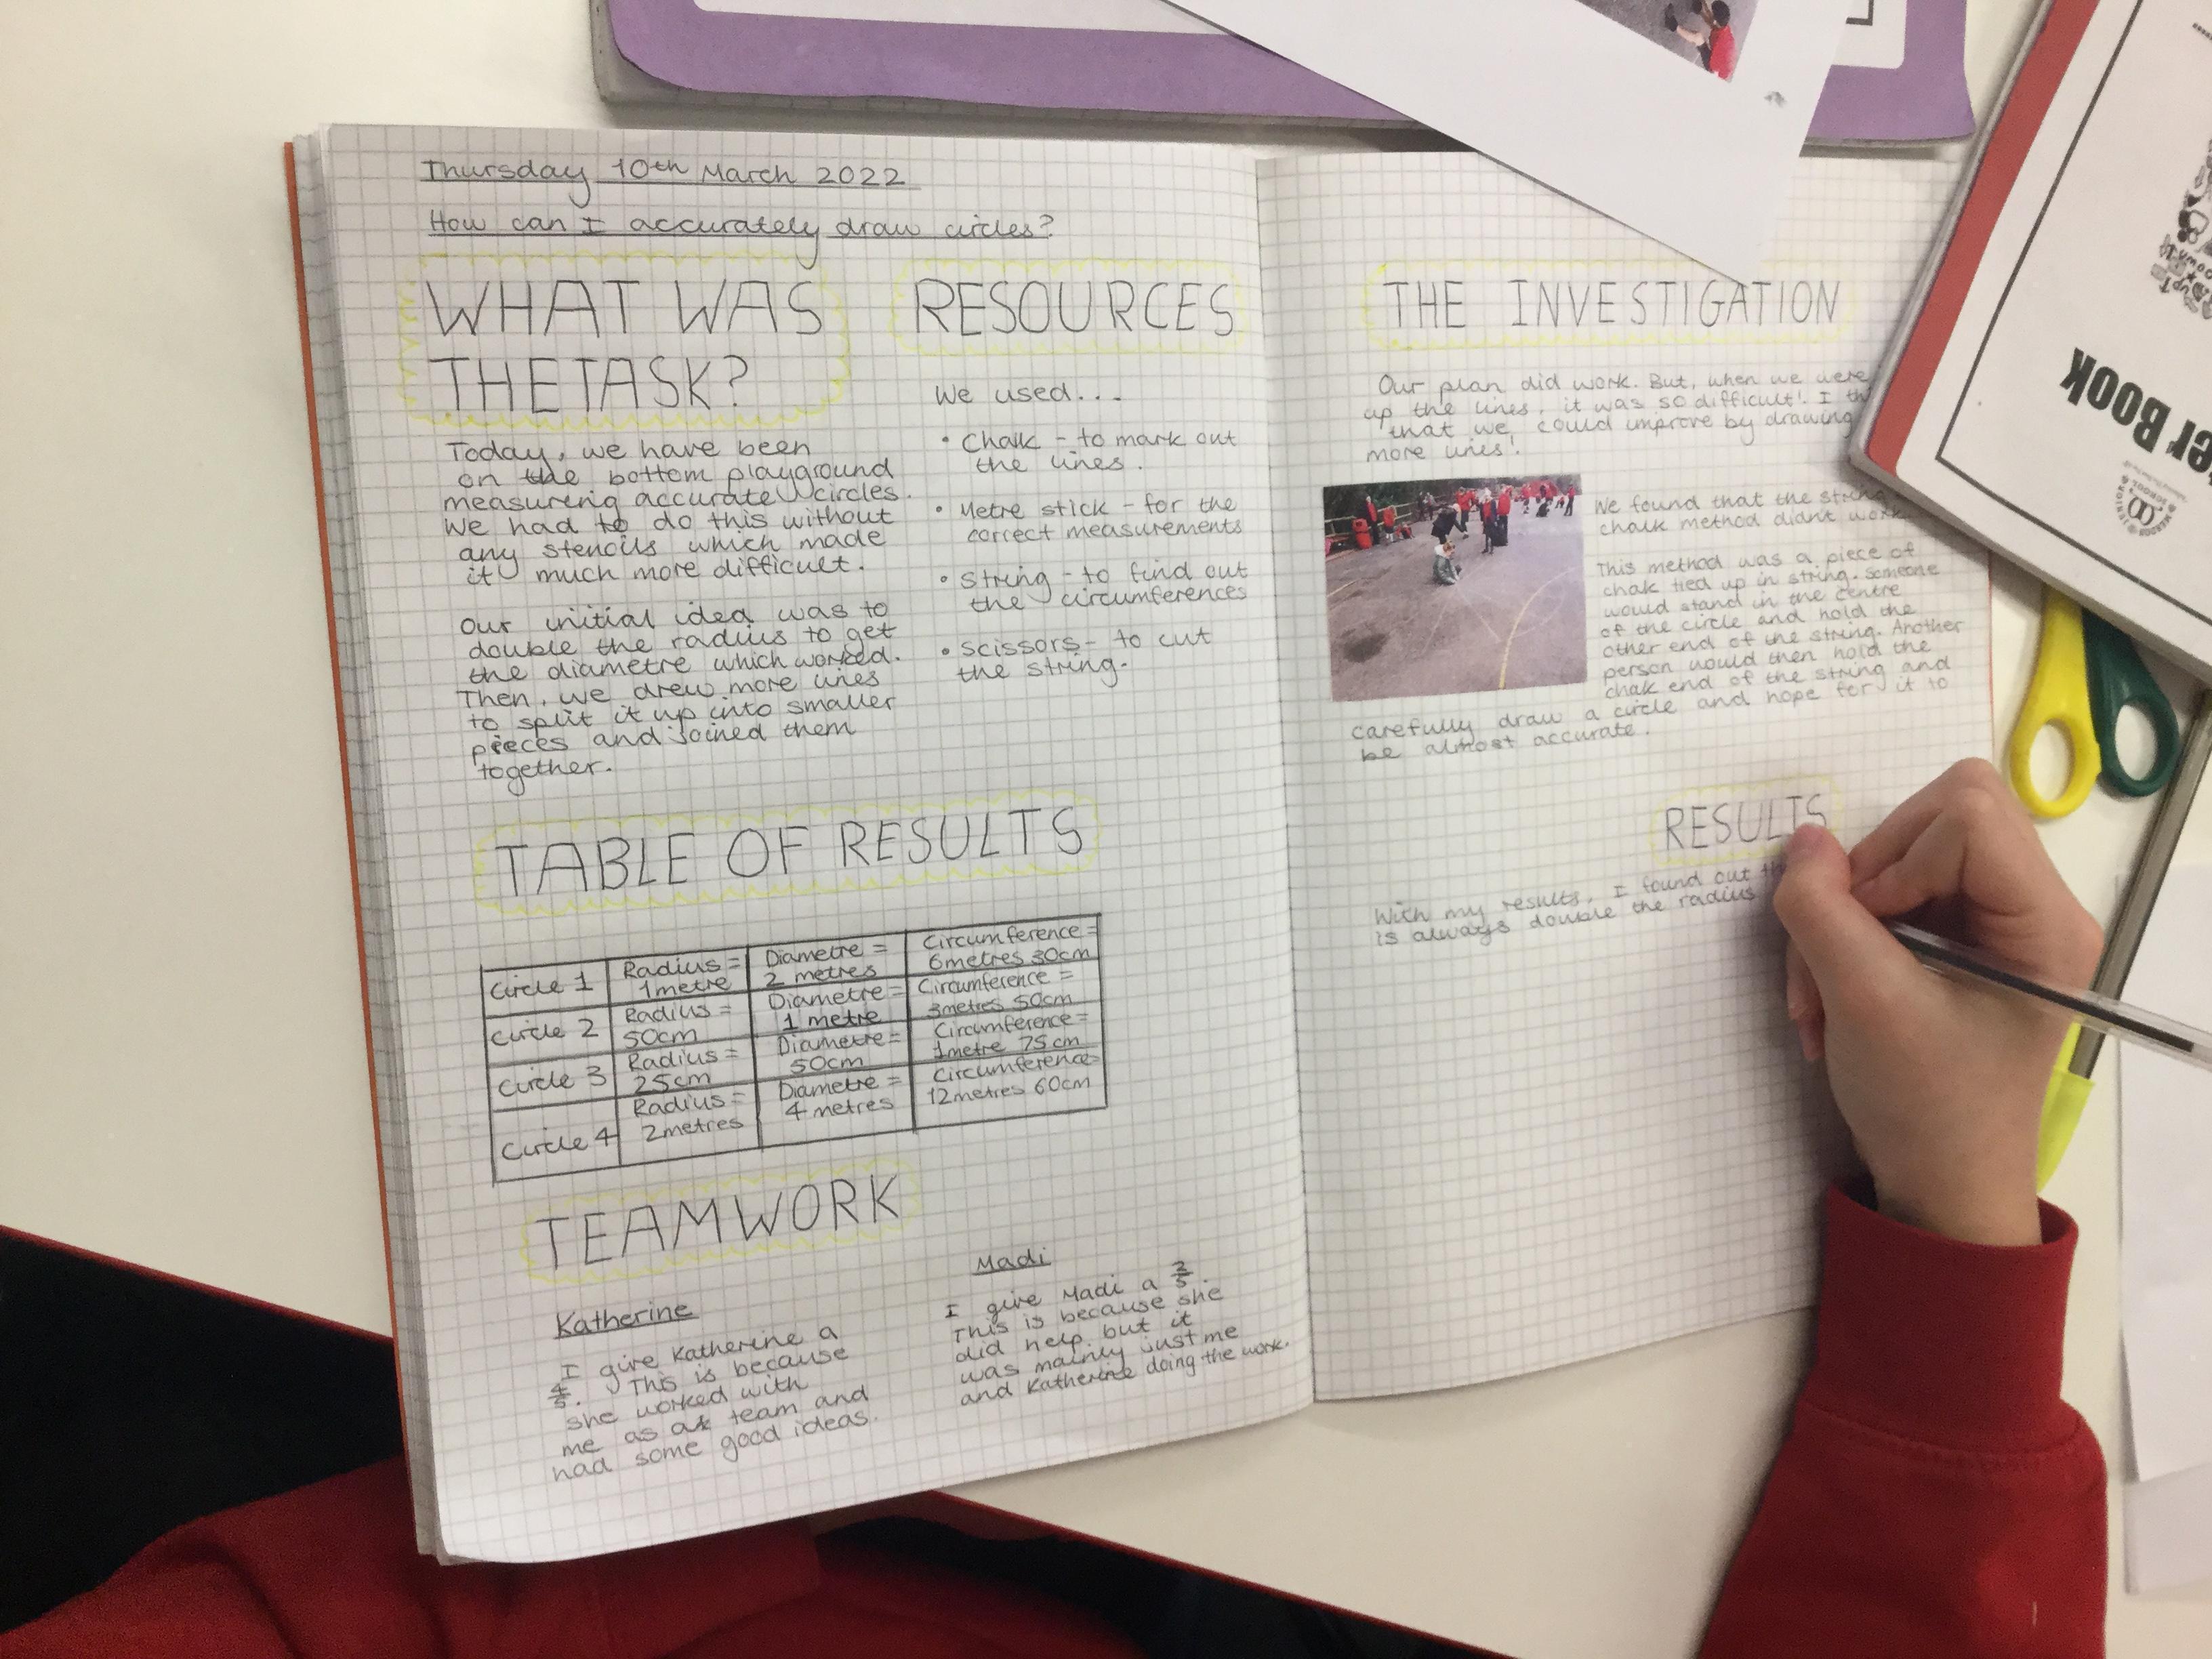 Thursday 10th March 2022
How can I accurately draw circles?
WHAT WAS
THE TASK?
Today, we have been
on the bottom playground
measuring accurate circles.
We had to do this without
any stencils which made
it much more difficult.
Our initial idea was to
double the radius to get
the diametre which worked.
Then, we drew more lines
to split it up into smaller
pieces and joined them
together.
RESOURCES
We used...
• Chalk - to mark out
the lines.
• Metre stick - for the
correct measurements
• String - to find out
the circumferences
• scissors - to cut
the string.
TABLE OF RESULTS
Circle 1 Radius = 1metre Diametre = 2 metres Circumference = 6metres 30cm
Circle 2 Radius = 50cm Diametre = 1 metre Circumference = 3metres 50cm
Circle 3 Radius = 25cm Diametre = 50cm Circumference = 1metre 75cm
Circle 4 Radius = 2metres Diametre = 4 metres Circumference = 12metres 60cm
TEAMWORK
Katherine
I give Katherine a
4/5. This is because
she worked with
me as a team and
had some good ideas.
Madi
I give Madi a 2/5.
This is because she
did help but it
was mainly just me
and Katherine doing the work.
THE INVESTIGATION
Our plan did work. But, when we were
up the lines, it was so difficult! I
that we, could improve by drawing
more lines!
We found that the string
chalk method didnt work
This method was a piece of
chak tied up in string. Someone
would stand in the centre
of the circle and hold the
other end of the string. Another
person would then hold the
chak end of the string and
carefully draw a circle and hope for it to
be almost accurate.
RESULTS
With my results, I found out
is always double the radius
Book